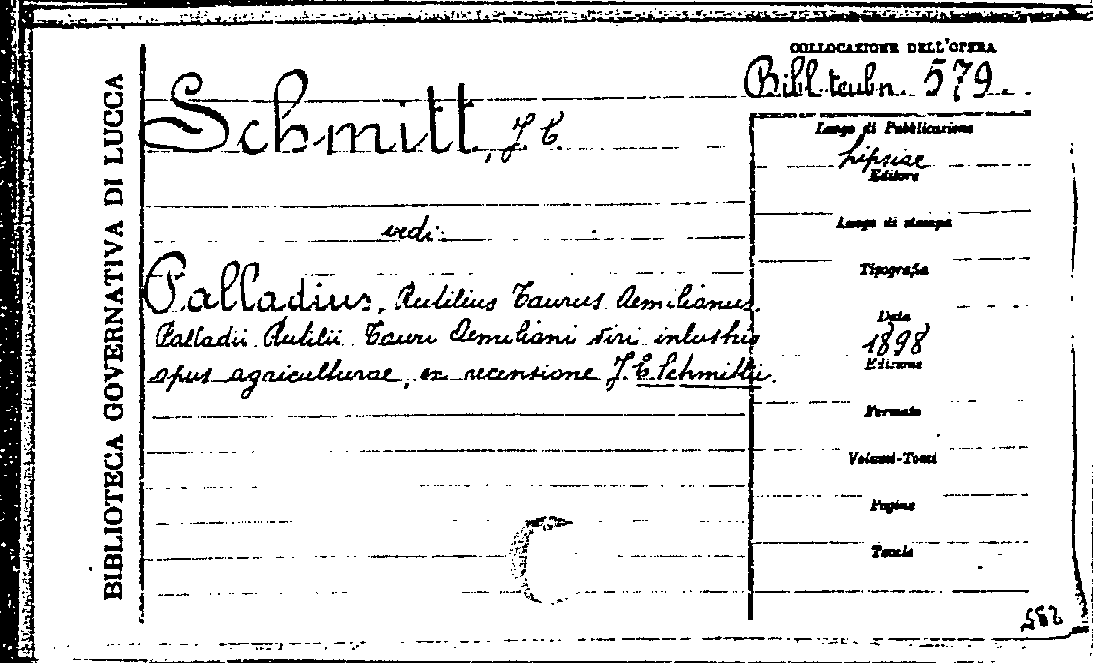 BIBLIOTECA GOVERNATIVA DI LUCCA
COLLOCAZIONE DELL'OPERA
Bibl. teubn. 579.
Schmitt, J. C.
vedi:
Palladius, Rutilius Taurus Aemilianus.
Palladii Rutilii Tauri Aemiliani viri inlustris
opus agriculturae, ex recensione J. C. Schmittii.
Luogo di Pubblicazione
Lipsiae
Editore
Luogo di stampa
Tipografia
Data
1898
Edizione
Formato
Volumi-Tomi
Pagine
Tavole
582